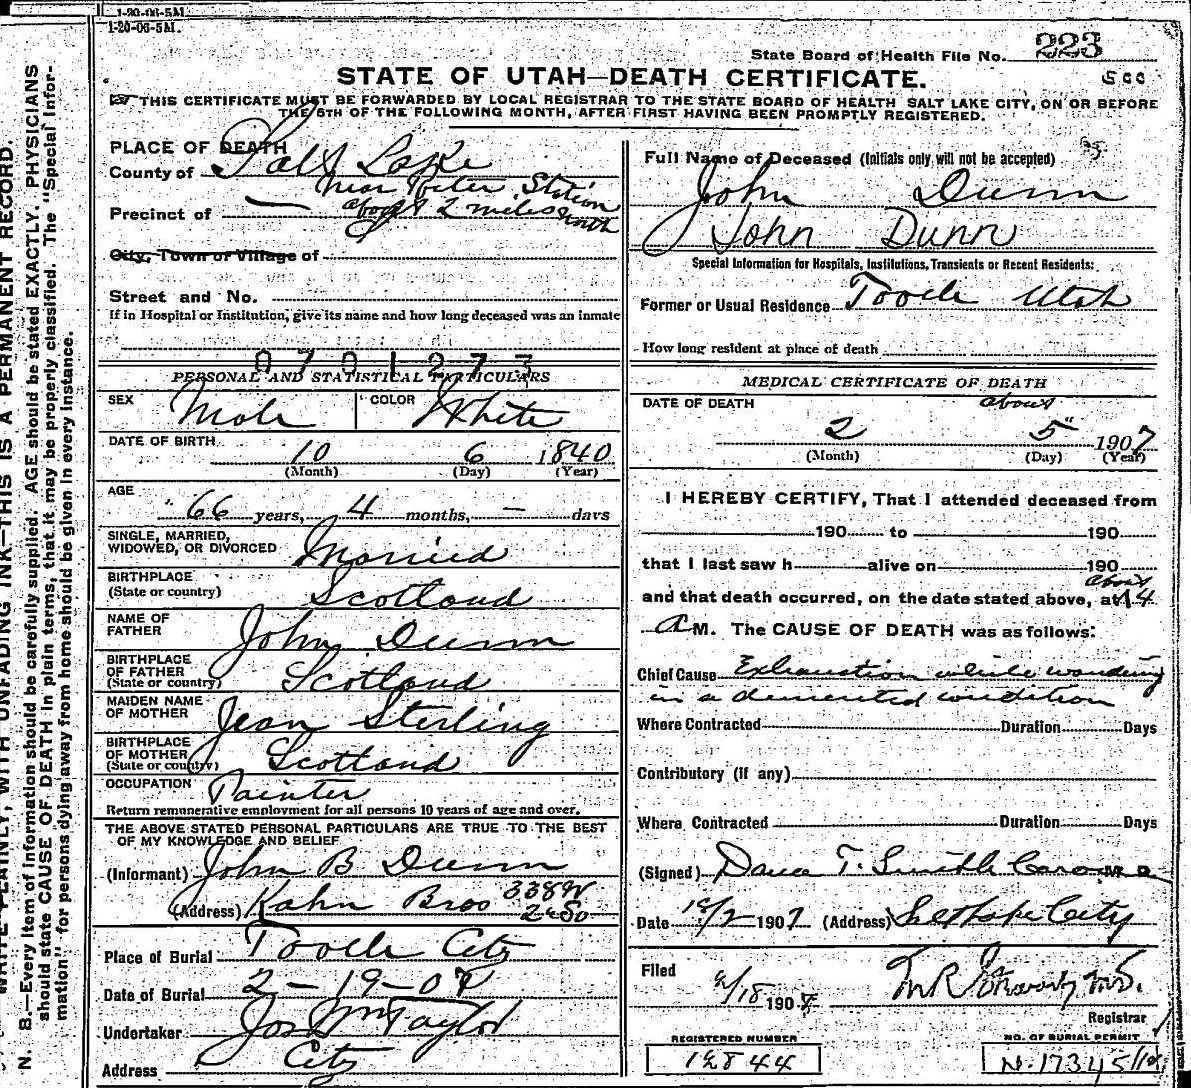 1-20-06-5M.
1-20-06-5M.
State Board of Health File No. 223
500
STATE OF UTAH—DEATH CERTIFICATE.
THIS CERTIFICATE MUST BE FORWARDED BY LOCAL REGISTRAR TO THE STATE BOARD OF HEALTH SALT LAKE CITY, ON OR BEFORE
THE 5TH OF THE FOLLOWING MONTH, AFTER FIRST HAVING BEEN PROMPTLY REGISTERED.
WRITE PLAINLY, WITH UNFADING INK—THIS IS A PERMANENT RECORD.
N. B.—Every item of information should be carefully supplied. AGE should be stated EXACTLY. PHYSICIANS
should state CAUSE OF DEATH in plain terms, that it may be properly classified. The "Special Infor-
mation" for persons dying away from home should be given in every instance.
PLACE OF DEATH
County of Salt Lake
near Station
Precinct of — about 2 miles north
City, Town or Village of
Street and No.
If in Hospital or Institution, give its name and how long deceased was an inmate
0701273
PERSONAL AND STATISTICAL PARTICULARS
SEX Male COLOR White
DATE OF BIRTH 10 6 1840
(Month) (Day) (Year)
AGE
66 years, 4 months, — days
SINGLE, MARRIED,
WIDOWED, OR DIVORCED Married
BIRTHPLACE
(State or country) Scotland
NAME OF
FATHER John Dunn
BIRTHPLACE
OF FATHER
(State or country) Scotland
MAIDEN NAME
OF MOTHER Jean Sterling
BIRTHPLACE
OF MOTHER
(State or country) Scotland
OCCUPATION Painter
Return remunerative employment for all persons 10 years of age and over.
THE ABOVE STATED PERSONAL PARTICULARS ARE TRUE TO THE BEST
OF MY KNOWLEDGE AND BELIEF
(Informant) John B Dunn
(Address) Kahn Bros 338 W
2 So
Place of Burial Tooele City
Date of Burial 2-19-07
Undertaker Jos Wm Taylor
Address City
Full Name of Deceased (Initials only will not be accepted)
John Dunn
John Dunn
Special Information for Hospitals, Institutions, Transients or Recent Residents:
Former or Usual Residence Tooele Utah
How long resident at place of death
MEDICAL CERTIFICATE OF DEATH
DATE OF DEATH about
2 5 1907
(Month) (Day) (Year)
I HEREBY CERTIFY, That I attended deceased from
190 to 190
that I last saw h alive on 190
about
and that death occurred, on the date stated above, at 4
A M. The CAUSE OF DEATH was as follows:
Chief Cause Exhaustion while wandering
in a demented condition
Where Contracted Duration Days
Contributory (if any)
Where Contracted Duration Days
(Signed) Dana T. Smith M.D.
Date 1907 (Address) Salt Lake City
Filed 2/18 1907
Registrar
REGISTERED NUMBER
NO. OF BURIAL PERMIT
12844
N. 17345